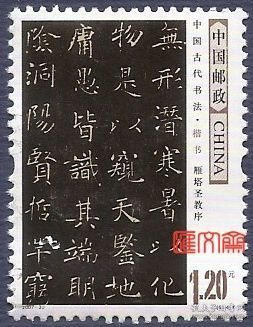 中国邮政 CHINA
中国古代书法·楷书 雁塔圣教序
無形潛寒暑以化
物是以窺天鑒地
庸愚皆識其端明
陰洞陽賢哲罕窮
1.20元
2007-30